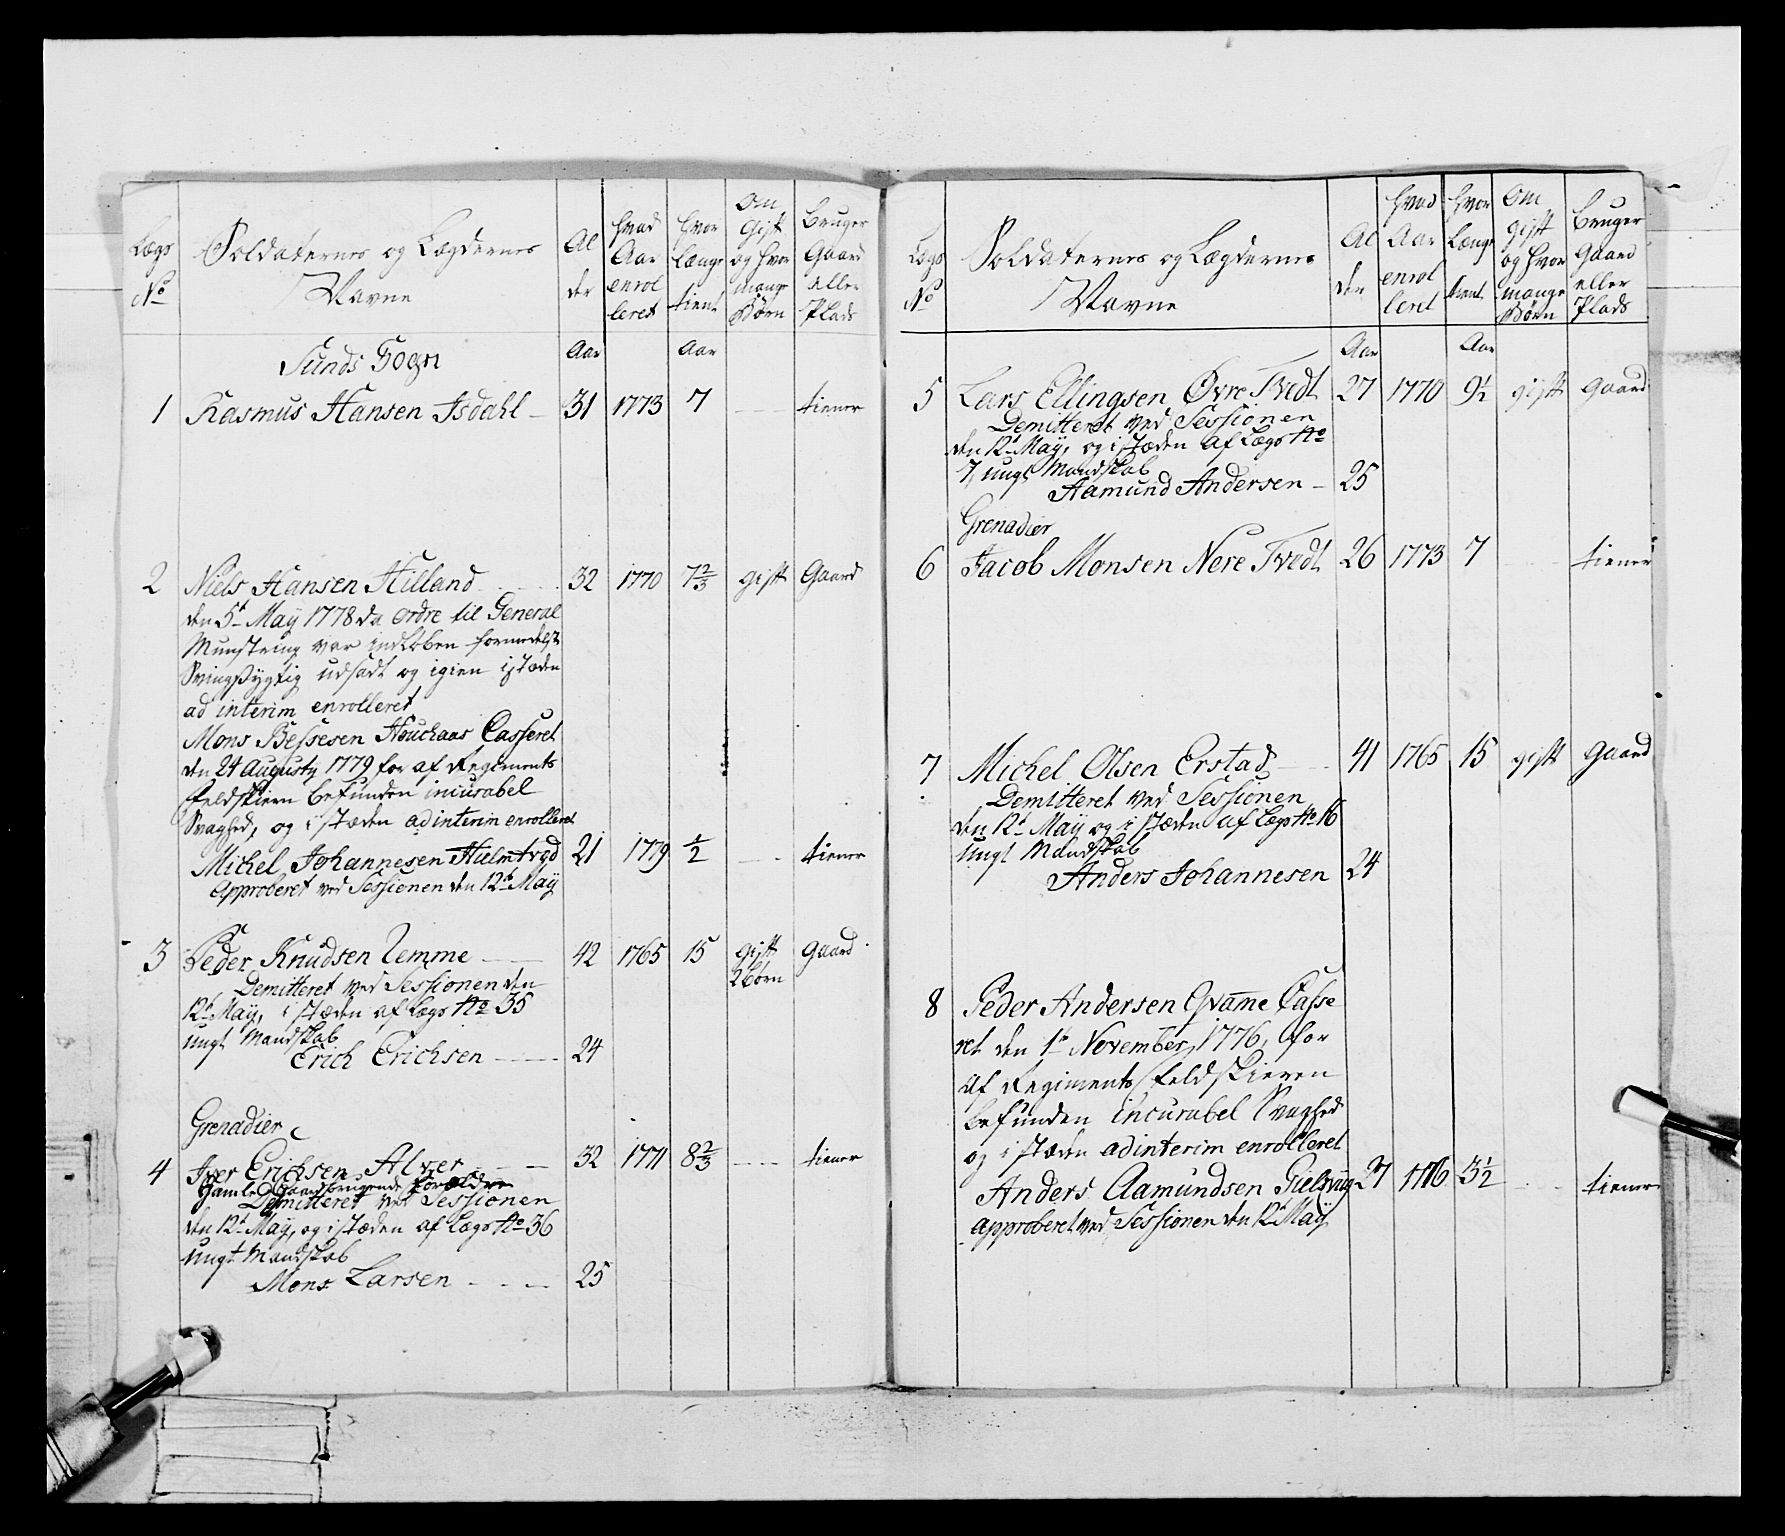 Lægs
No
Soldaternes og Lægdernes
Navne
Al
der
hvad
Aar
enrol
leret
hvor
længe
tient
Om
Gift
og hvor
mange
Børn
bruger
Gaard
eller
Plads
Sunds Sogn
Aar
Aar
1 Rasmus Hansen Isdahl 31 1773 7 tiener
2 Niels Hansen Hilland 32 1770 7 2/3 gift Gaard
den 5t May 1778 da ordre til General
Munstring var indløben formedelst
udsadt og igien istæden
ad interim enrolleret
Mons Bessesen Houchaas Casseret
den 24 Augusty 1779 for af Regiments
feldskieren befunden incurabel
Svaghed, og i stæden ad interim enrolleret
Michel Johannesen Hielmtved 21 1779 1/2 tiener
approberet ved Sessionen den 12t May
3 Peder Knudsen Lemme 42 1765 15 gift Gaard
2 børn
Demitteret ved Sessionen den
12t May, i stæden af Lægs No 35
ungt Mandskab
Erich Erichsen 24
Grenadier
4 Iver Erichsen Alver 32 1771 8 2/3 tiener
Gamle Gaardbrugende forældre
Demitteret ved Sessionen
den 12t May, og i stæden af Lægs No 36
ungt Mandskab
Mons Larsen 25
Lægs
No
Soldaternes og Lægdernes
Navne
Al
der
hvad
Aar
enrol
leret
hvor
længe
tient
Om
gift
og hvor
mange
Børn
bruger
Gaard
eller
Plads
Aar
Aar
5 Lars Ellingsen Øvre Tvedt 27 1770 9 1/2 gift Gaard
Demitteret ved Sessionen
den 12t May, og i stæden af Lægs No
7, ungt Mandskab
Aamund Andersen 25
Grenadier
6 Jacob Monsen Nere Tvedt 26 1773 7 tiener
7 Michel Olsen Erstad 41 1765 15 gift Gaard
Demitteret ved Sessionen
den 12t May og i stæden af Lægs No 16
ungt Mandskab
Anders Johannesen 24
8 Peder Andersen Qvame Casse
ret den 1te November 1776, for
af Regiments feldskieren
befunden incurabel Svaghed
og i stæden ad interim enrolleret
Anders Aamundsen 27 1776 3 1/2 tiener
approberet ved Sessionen den 12t May